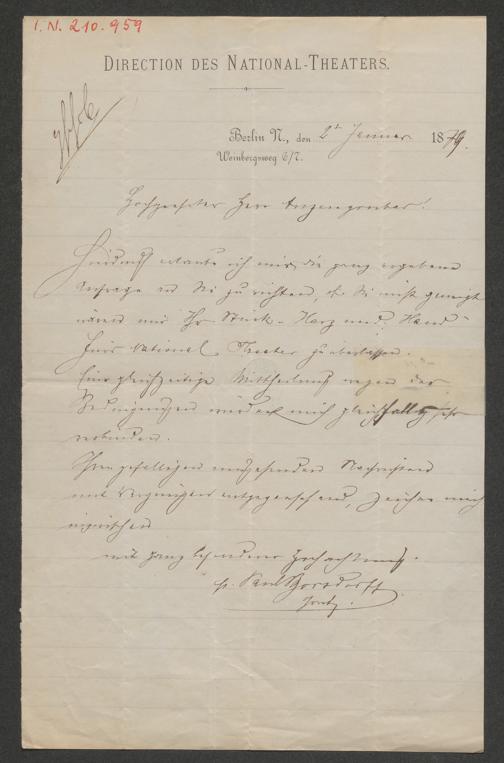 I. N. 210.959
DIRECTION DES NATIONAL-THEATERS.
Berlin N., den 2t Januar 1879.
Weinbergsweg 6/7.
Hochgeehrter Herr Anzengruber!
Hierdurch erlaube ich mir die ganz ergebene
Anfrage an Sie zu richten, ob Sie nicht geneigt
wären mir Ihr Stück „Herz und Hand"
fürs National Theater zu überlassen.
Eine gleichzeitige Mittheilung wegen der
Bedingungen würde mich gleichfalls sehr
verbinden.
Ihren gefälligen umgehenden Nachrichten
mit Vergnügen entgegensehend, zeichne mich
inzwischen
mit ganz besonderer Hochachtung.
p. Paul Borsdorff